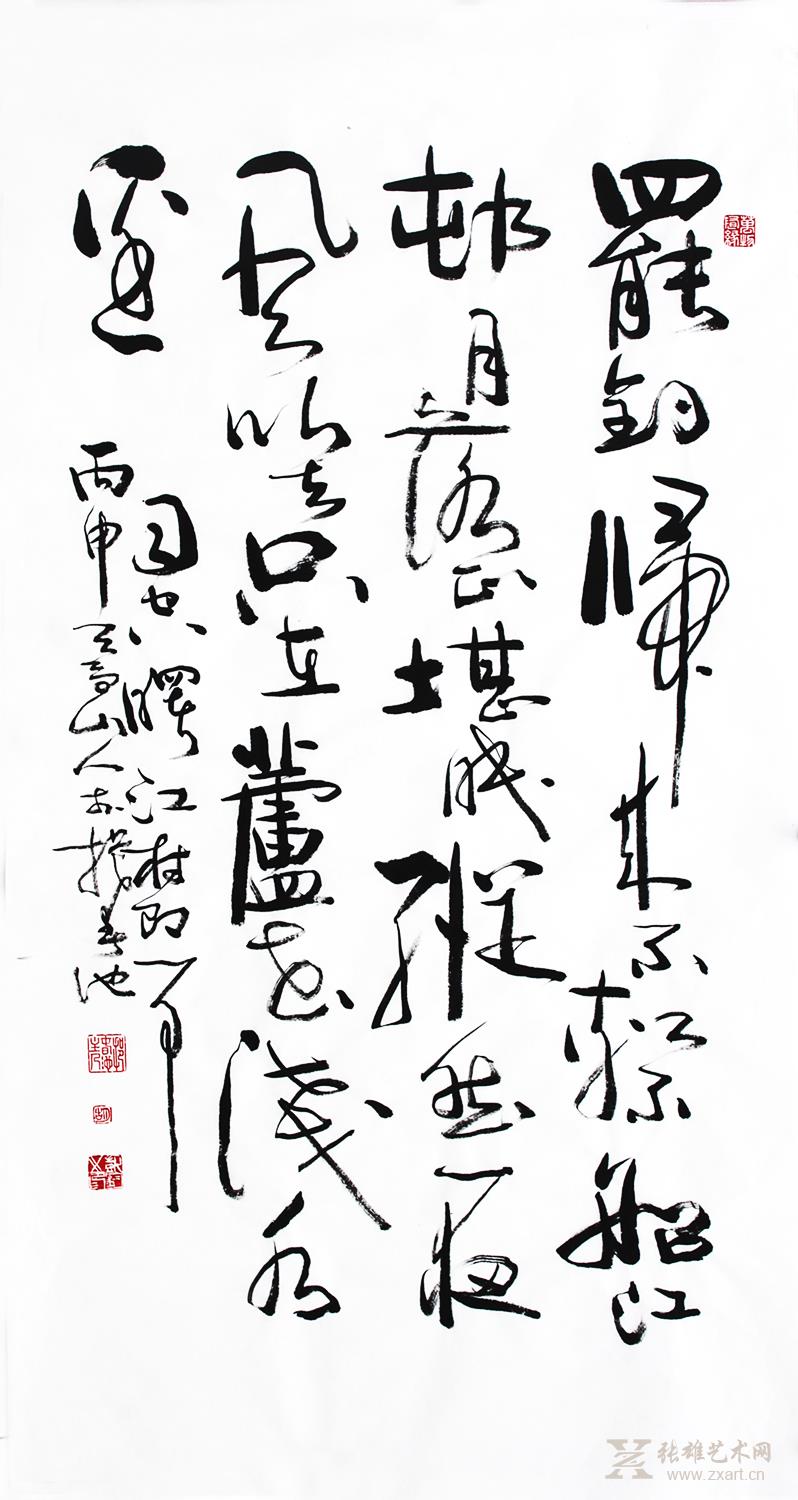 罷釣歸来不繫船江
邨月落正堪眠縱然一夜
風吹去只在蘆花淺水
邊
司空曙江村即事
丙申 山人 池
张雄艺术网
www.zxart.cn